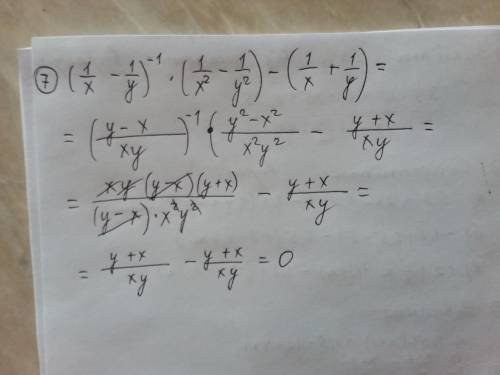 ⑦ (1/x - 1/y)^-1 · (1/x² - 1/y²) - (1/x + 1/y) =
= (y-x / xy)^-1 · (y²-x² / x²y² - y+x / xy =
= xy(y-x)(y+x) / (y-x)·x²y² - y+x / xy =
= y+x / xy - y+x / xy = 0